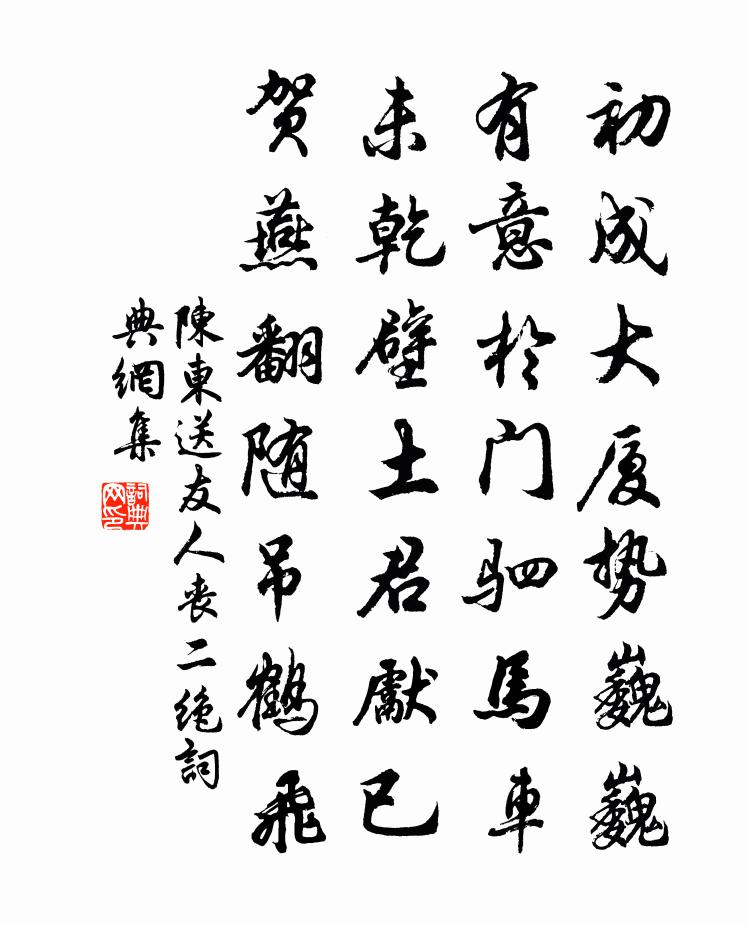 初成大厦势巍巍
有意於门驷馬車
未乾壁土君獻已
贺燕翻随吊鶴飛
陳東送友人丧二绝詞
典網集
詞典网印